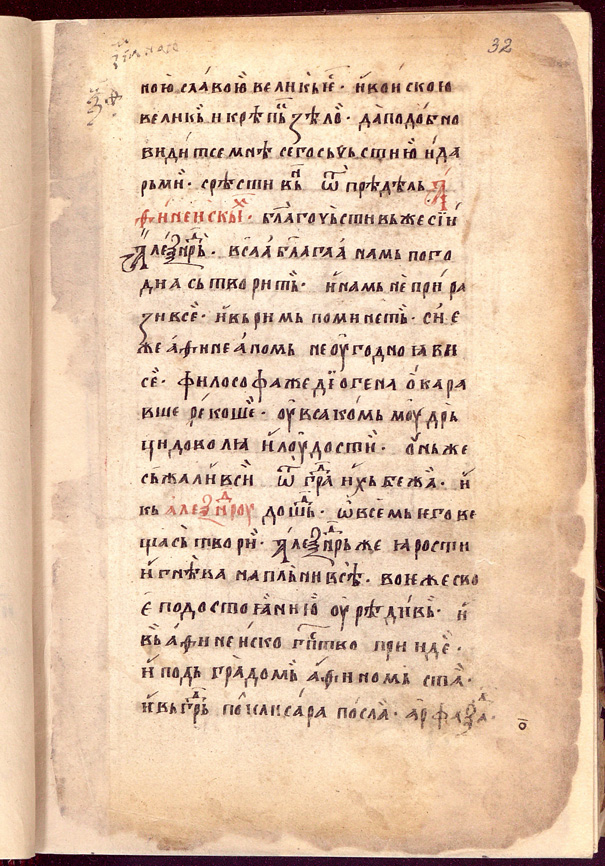 32
ною славою великыѥ· и воискою
великь и крѣпкь ѕѣло· да подобно
видит се мнѣ сего сь чьстию и да
рьми· срѣсти вь ѿ прѣдѣль а
ѳиненскыⷯ· благочьстивь же сїи
алеѯⷣнрь· всⷶ блага намь по го
дна сьтворить· и намь не прира
зи все· и вь римь поминеть· си е
же аѳинеаномь не оугодно ꙗви
се· философа же дїогена о кара
вше рекоше· оу всакомь моудрь
ци доволꙗ и лоудости· он же
сьжали вси ѿ грⷣа ихь бежа· и
кь алеѯⷣнроу дошⷣь· ѡ всемь его ве
ща сьтвори· алеѯⷣнрь же ꙗрости
и гнѣва напльни всѣ· воиске сво
е по достоꙗнию оурѣдивь· и
вь аѳинеиско гⷭтво прииде·
и подь градомь аѳиномь ста·
и вь грⷣь поклисара посла· арфаѯⷣа·